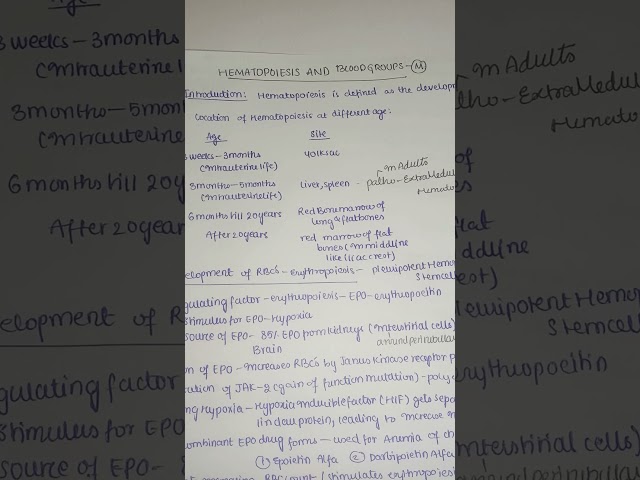 HEMATOPOIESIS AND BLOODGROUPS - M
Introduction: Hematopoiesis is defined as the developm
Location of Hematopoiesis at different age:
Age Site
3 weeks - 3months Yolksac
(Intrauterine life)
3months - 5months Liver, spleen - In Adults
(Intrauterine life) patho - ExtraMedul
Hemato
6months till 20years Red Bonemarrow of
long & flat bones
After 20years red marrow of flat
bones (In middline
like iliac crest)
elopment of RBC's - Erythropoiesis - pleuripotent Hemo
Stemcell
gulating factor - erythropoiesis - EPO - erythropoeitin
Stimulus for EPO - Hypoxia
Source of EPO - 85% EPO from kidneys (Interstitial cells)
around peritubular
Brain
on of EPO - Increases RBC's by Janus kinase receptor p
ation of JAK-2 (gain of function mutation) - polyc
ng Hypoxia - Hypoxia inducible factor (HIF) gets sepa
lindau protein, leading to increase in
ombinant EPO drug forms - used for Anemia of ch
① Epoietin Alfa ② Darbipoietin Alfa
RBC count (stimulates erythropoiesis